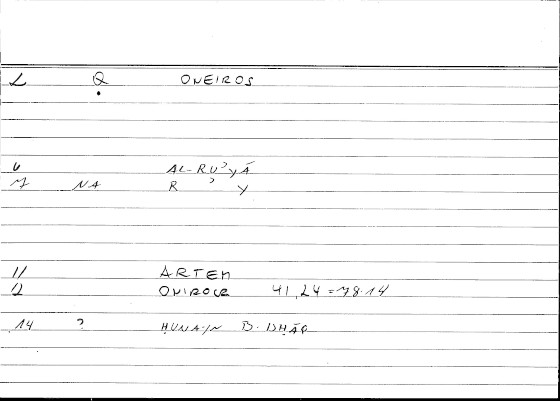 L Q ONEIROS
6 AL-RUʾYĀ
7 NA R ʾ Y
11 ARTEM
12 ONIROCR 41,24 = 78.14
14 ? ḤUNAYN B. ISḤĀQ